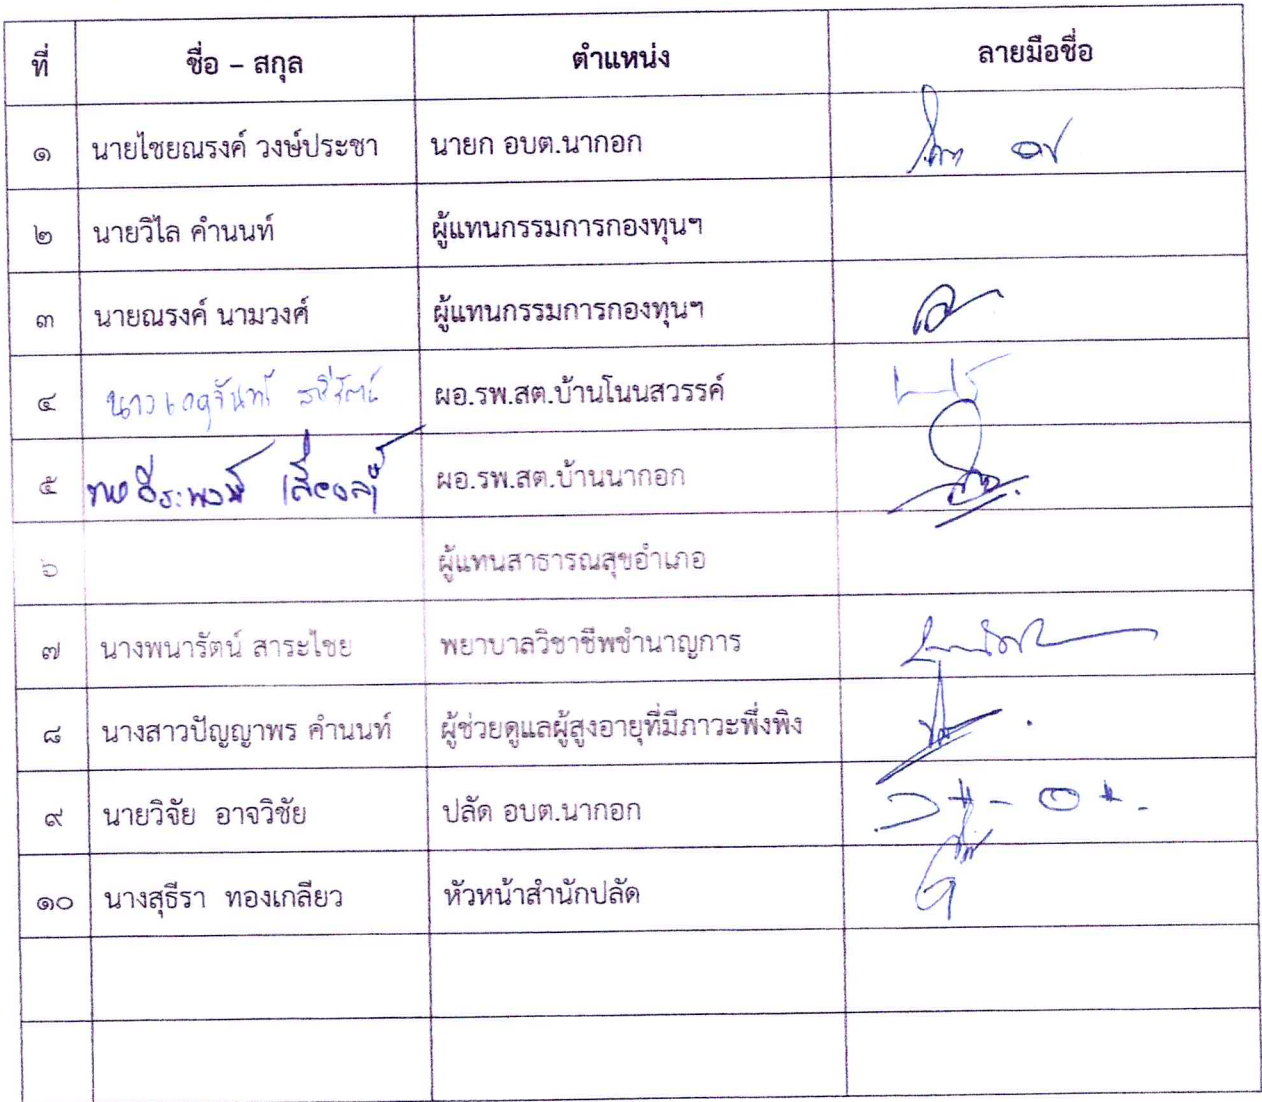 ที่ ชื่อ – สกุล ตำแหน่ง ลายมือชื่อ
๑ นายไชยณรงค์ วงษ์ประชา นายก อบต.นากอก
๒ นายวิไล คำนนท์ ผู้แทนกรรมการกองทุนฯ
๓ นายณรงค์ นามวงศ์ ผู้แทนกรรมการกองทุนฯ
๔ ผอ.รพ.สต.บ้านโนนสวรรค์
๕ ผอ.รพ.สต.บ้านนากอก
๖ ผู้แทนสาธารณสุขอำเภอ
๗ นางพนารัตน์ สาระไชย พยาบาลวิชาชีพชำนาญการ
๘ นางสาวปัญญาพร คำนนท์ ผู้ช่วยดูแลผู้สูงอายุที่มีภาวะพึ่งพิง
๙ นายวิจัย อาจวิชัย ปลัด อบต.นากอก
๑๐ นางสุธีรา ทองเกลียว หัวหน้าสำนักปลัด